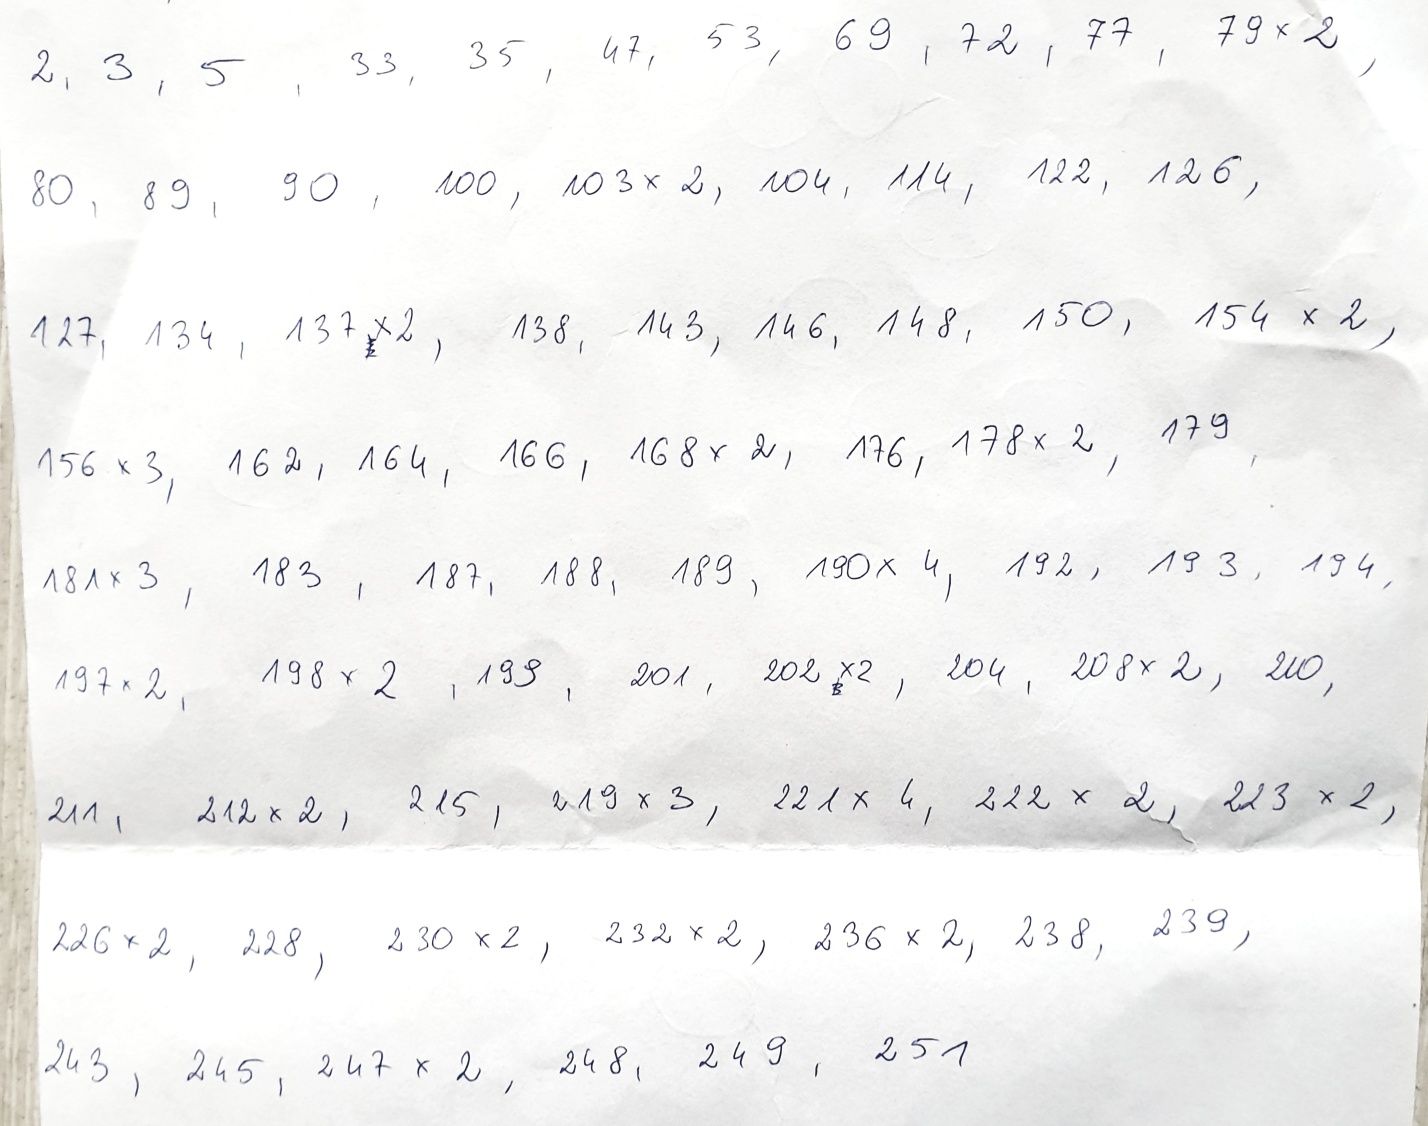 2, 3, 5, 33, 35, 47, 53, 69, 72, 77, 79 x 2,
80, 89, 90, 100, 103 x 2, 104, 114, 122, 126,
127, 134, 137 x 2, 138, 143, 146, 148, 150, 154 x 2,
156 x 3, 162, 164, 166, 168 x 2, 176, 178 x 2, 179,
181 x 3, 183, 187, 188, 189, 190 x 4, 192, 193, 194,
197 x 2, 198 x 2, 199, 201, 202 x 2, 204, 208 x 2, 210,
211, 212 x 2, 215, 219 x 3, 221 x 4, 222 x 2, 223 x 2,
226 x 2, 228, 230 x 2, 232 x 2, 236 x 2, 238, 239,
243, 245, 247 x 2, 248, 249, 251